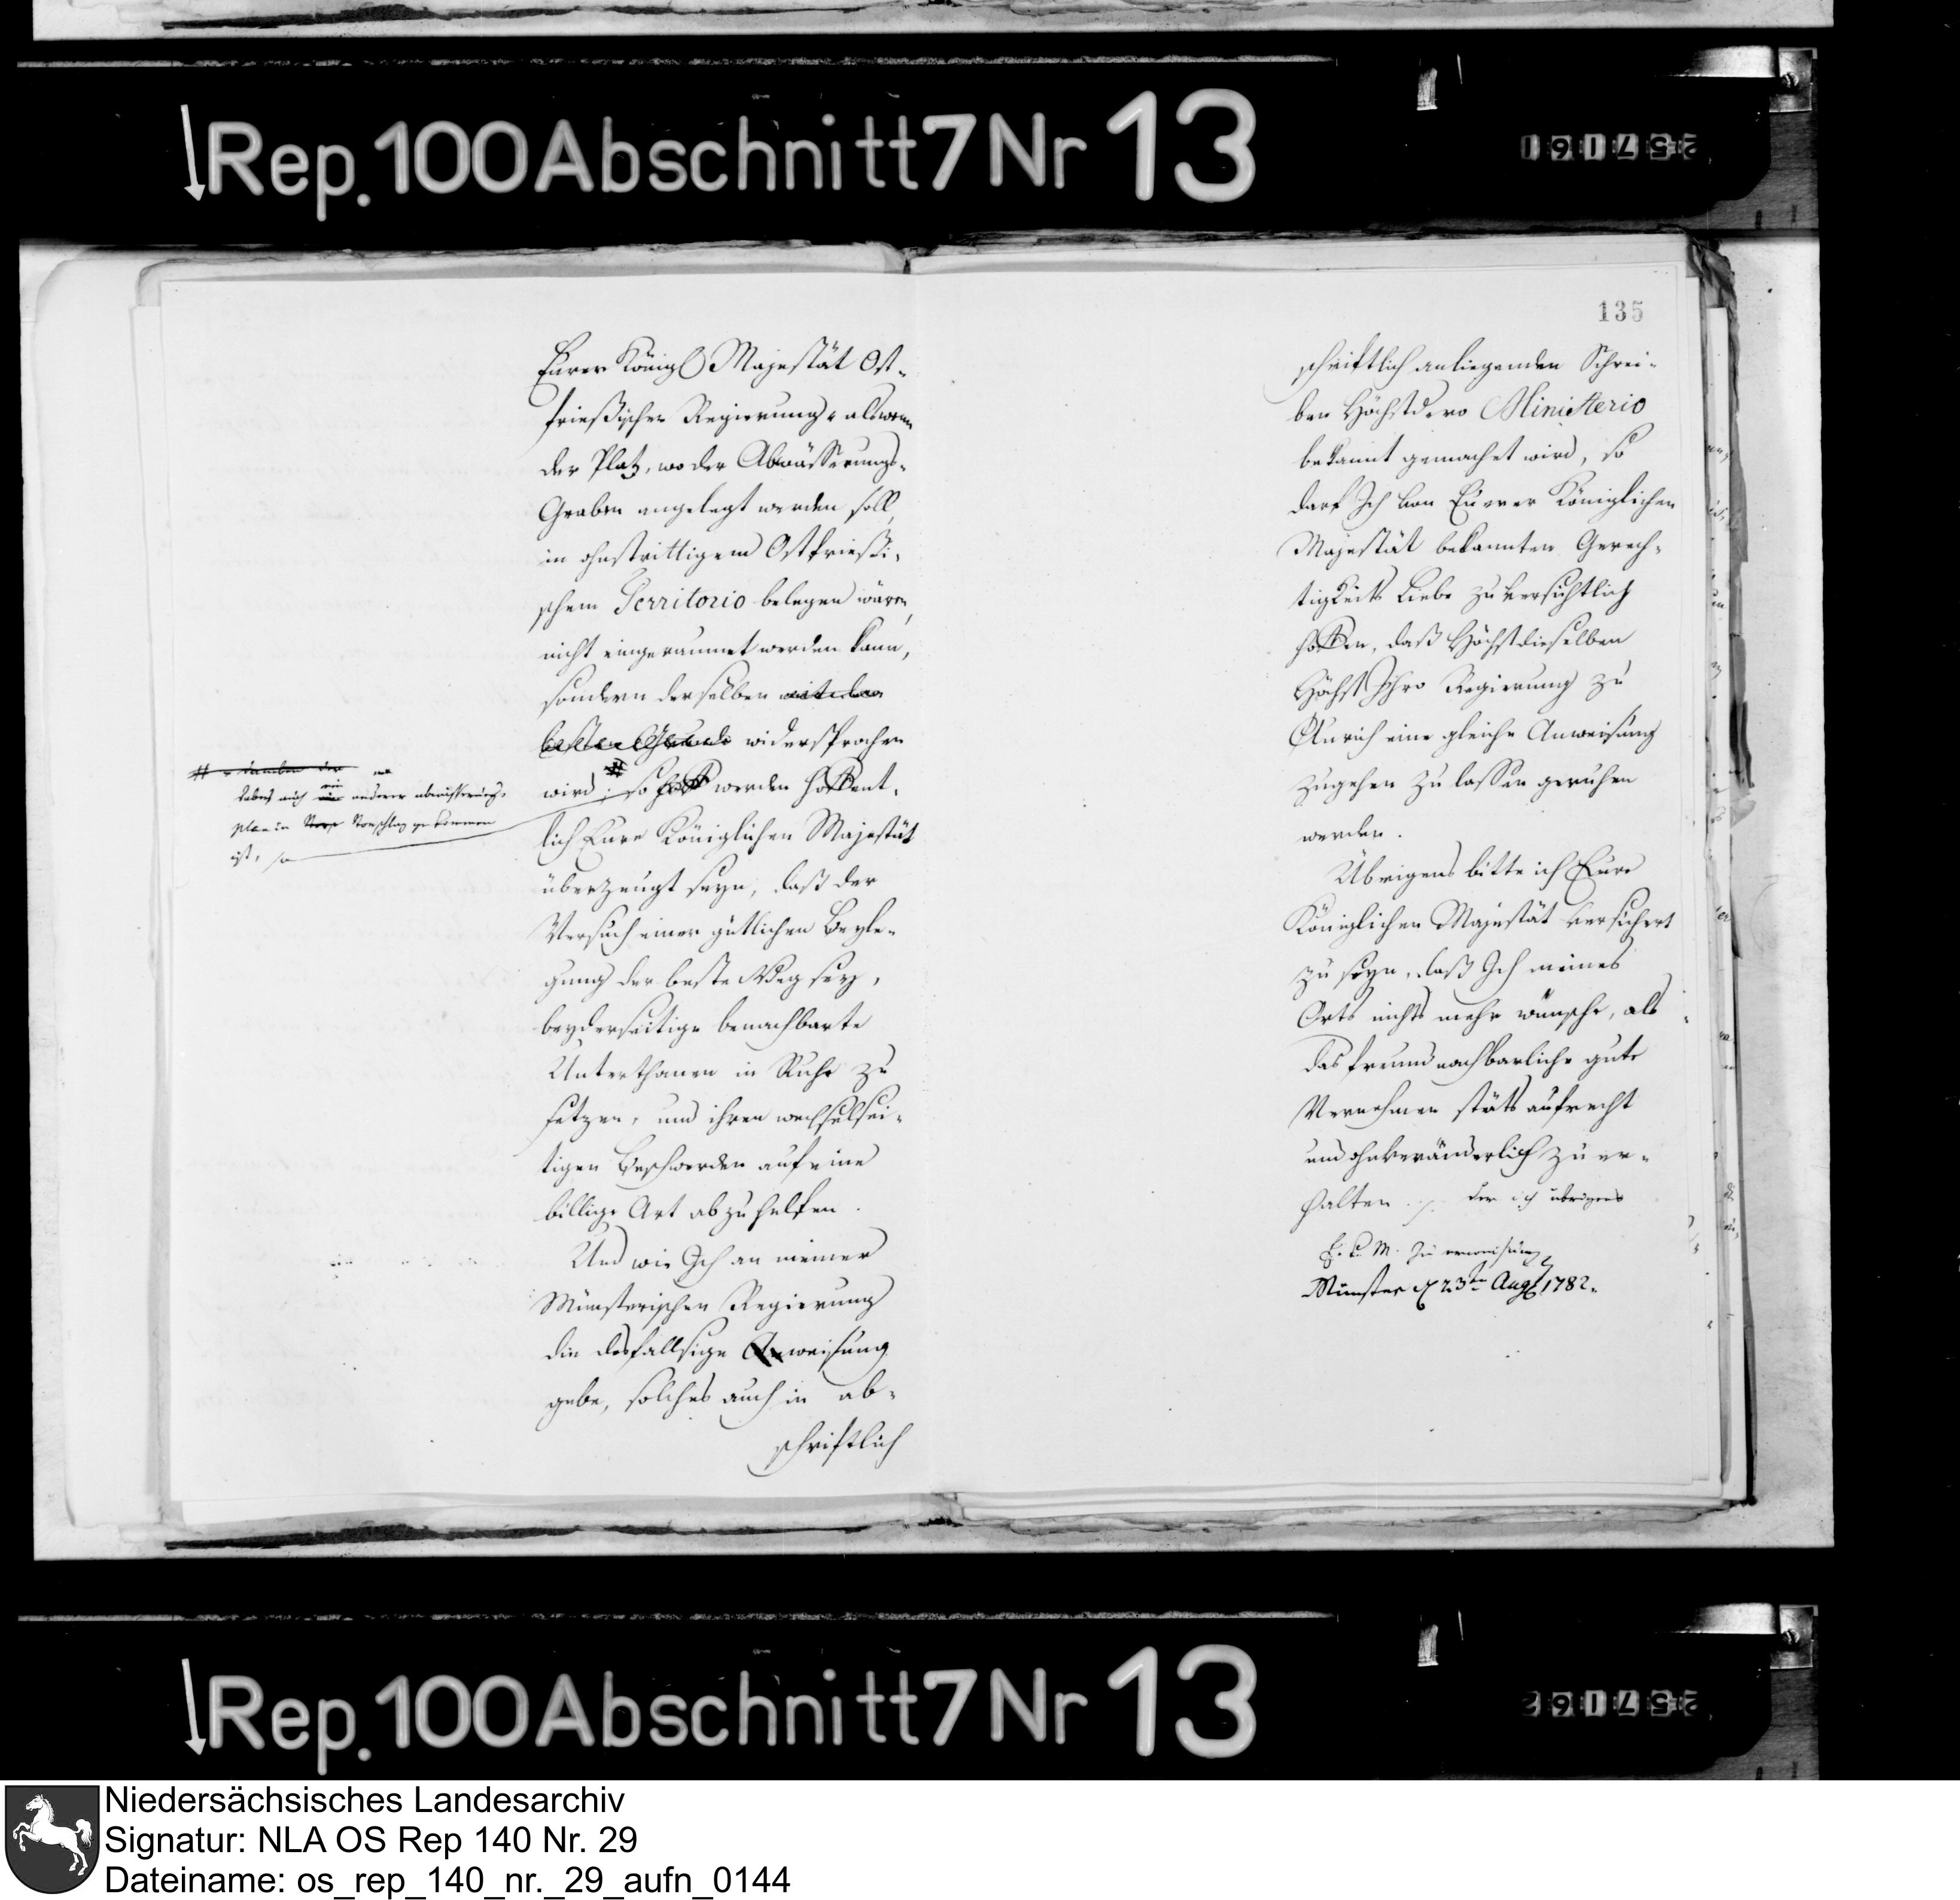 ↓Rep.100Abschnitt7Nr 13
257161
Eurer Königl Majestät Ost-
frießischer Regierung, als wenn
der Platz, wo der Abwässerungs-
Graben angelegt werden soll,
in ohnstrittigem Ostfrießi-
schem Territorio belegen wäre,
nicht eingeraumet werden kann,
sondern derselben mit dem
besten Grunde widersprochen
wird; # so werden hoffent-
# daneben der
dabey auch ein anderer abwässerungs-
plan in Vorschlag gekommen
ist, so
lich Eure Königlichen Majestät
überzeugt seyn, daß der
Versuch einer gütlichen Beyle-
gung der beste Weg sey,
beyderseitige benachbarte
Unterthanen in Ruhe zu
setzen, und ihren wechselsei-
tigen Beschwerden auf eine
billige Art abzuhelfen.
Und wie Ich an meiner
Münsterischen Regierung
die desfallsige Anweisung
gebe, solches auch in ab-
schriftlich
135
schriftlich anliegenden Schrei-
ben Höchstdero Ministerio
bekannt gemachet wird, so
darf Ich von Eurer Königlichen
Majestät bekannten Gerech-
tigkeits Liebe zuversichtlich
hoffen, daß Höchstdieselben
Höchst Ihro Regierung zu
Aurich eine gleiche Anweisung
zugehen zu lassen geruhen
werden.
Übrigens bitte ich Eure
Königlichen Majestät versichert
zu seyn, daß Ich meines
Orts nichts mehr wünsche, als
das freundnachbarliche gute
Vernehmen stäts aufrecht
und ohnveränderlich zu er-
halten ./. der ich übrigens
E. K. M. zu erweisung
Münster d 23ten Aug 1782.
↓Rep.100Abschnitt7Nr 13
257162
Niedersächsisches Landesarchiv
Signatur: NLA OS Rep 140 Nr. 29
Dateiname: os_rep_140_nr._29_aufn_0144